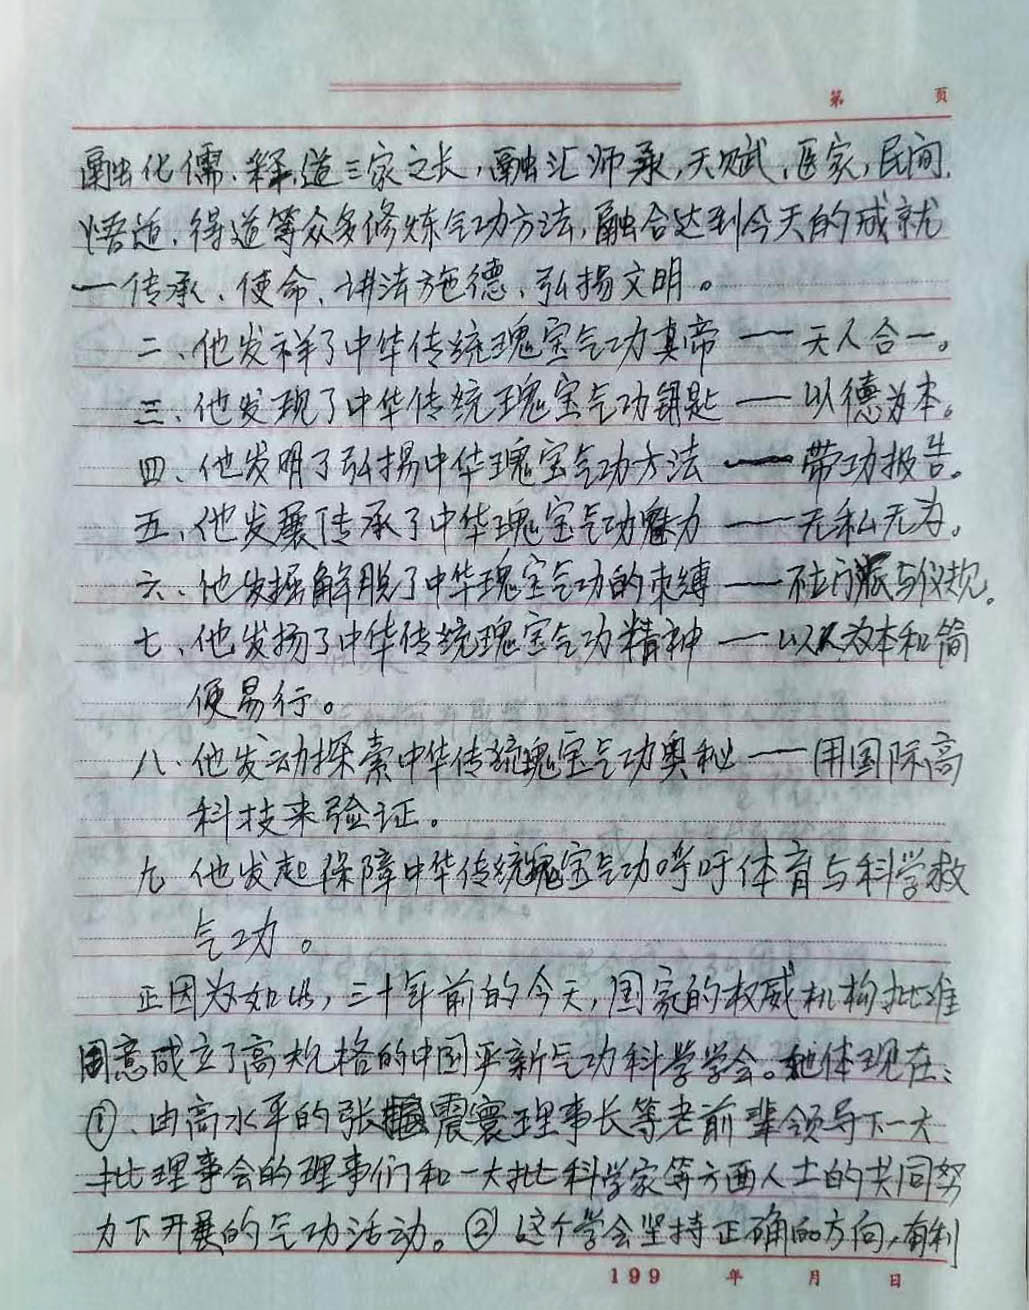 第 页
融化儒、释、道三家之长，融汇师承，天赋、医家，民间、
悟道、得道等众多修炼气功方法，融合达到今天的成就
一传承、使命、讲法施德、弘扬文明。
二、他发祥了中华传统瑰宝气功真帝——天人合一。
三、他发现了中华传统瑰宝气功钥匙——以德为本。
四、他发明了弘扬中华瑰宝气功方法——带功报告。
五、他发展传承了中华瑰宝气功魅力——无私无为。
六、他发掘解脱了中华瑰宝气功的束缚——不立门派与仪规。
七、他发扬了中华传统瑰宝气功精神——以人为本和简
便易行。
八、他发动探索中华传统瑰宝气功奥秘——用国际高
科技来验证。
九 他发起保障中华传统瑰宝气功呼吁体育与科学救
气功。
正因为如此，三十年前的今天，国家的权威机构批准
同意成立了高规格的中国严新气功科学学会。她体现在：
①、由高水平的张震寰理事长等老前辈领导下一大
批理事会的理事们和一大批科学家等方面人士的共同努
力下开展的气功活动。②这个学会坚持正确的方向，有利
199 年 月 日